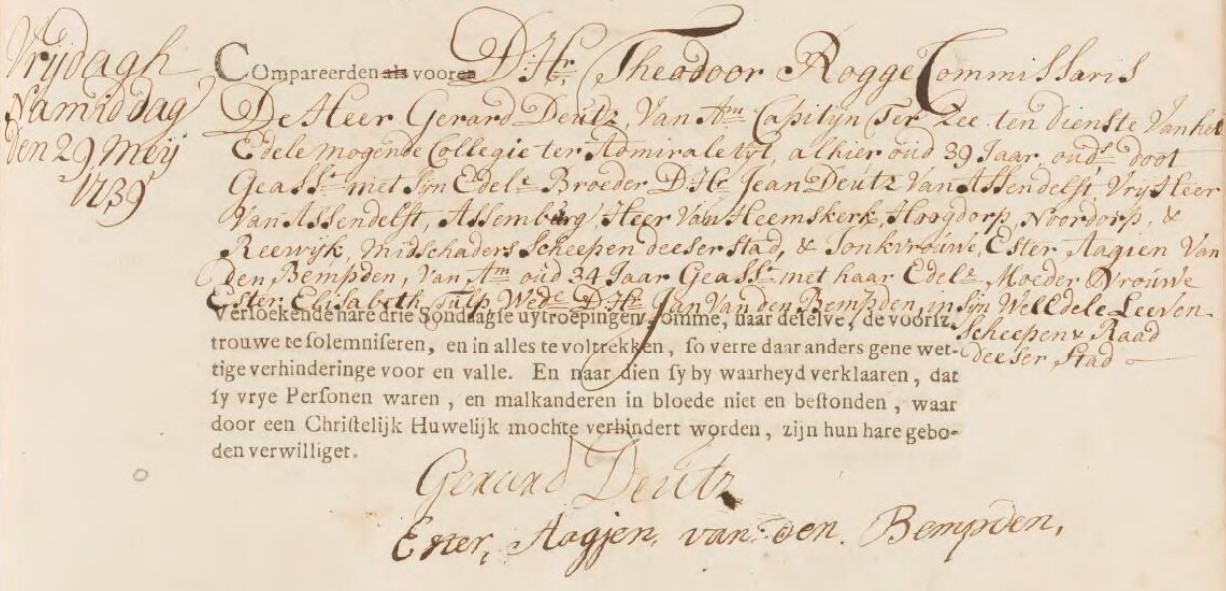 Vrijdagh
Namiddag
den 29 Meij
1739
Compareerden als vooren D'Hr. Theodoor Rogge Commissaris
De Heer Gerard Deutz, Van Am Capitijn Ter Zee ten dienste Van het
Edele Mogende Collegie ter Admiraletijt, alhier oud 39 Jaar, ouds doot
Geasst. met sijn Edele Broeder D'Hr. Jean Deutz Van Assendelft Vrij Heer
Van Assendelft, Assemburg, Heer Van Heemskerk, Hoogdorp, Noordorp, &
Reewijk, Midschaders Scheepen deeser stad, & Jonkvrouwe, Ester Aagien Van
Den Bempden, Van Am oud 34 Jaar Geasst. met haar Edele Moeder Vrouwe
Ester Elisabeth Tulp Wede D'Hr. Jan Van den Bempden, in sijn WelEdele Leeven
Scheepen & Raad
deeser Stad
Versoekende hare drie Sondaagse uytroepingen, omme, naar deselve, de voorsz.
trouwe te solemniseren, en in alles te voltrekken, so verre daar anders gene wet-
tige verhinderinge voor en valle. En naar dien sy by waarheyd verklaaren, dat
sy vrye Personen waren, en malkanderen in bloede niet en bestonden, waar
door een Christelijk Huwelijk mochte verhindert worden, zijn hun hare gebo-
den verwilliget.
Gerard Deutz
Ester, Aagjen, van den Bempden,